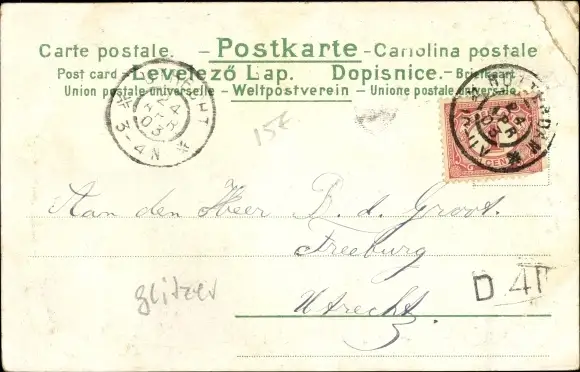 Carte postale. – Postkarte – Cartolina postale
Post card – Levelező Lap. Dopisnice. – Briefkaart
Union postale universelle – Weltpostverein – Unione postale universale
24
APR
03
3-4N
ROTTERDAM
15E
CENT
Aan den Heer B. d. Groot.
Treeburg
Utrecht
glitzer
D 41